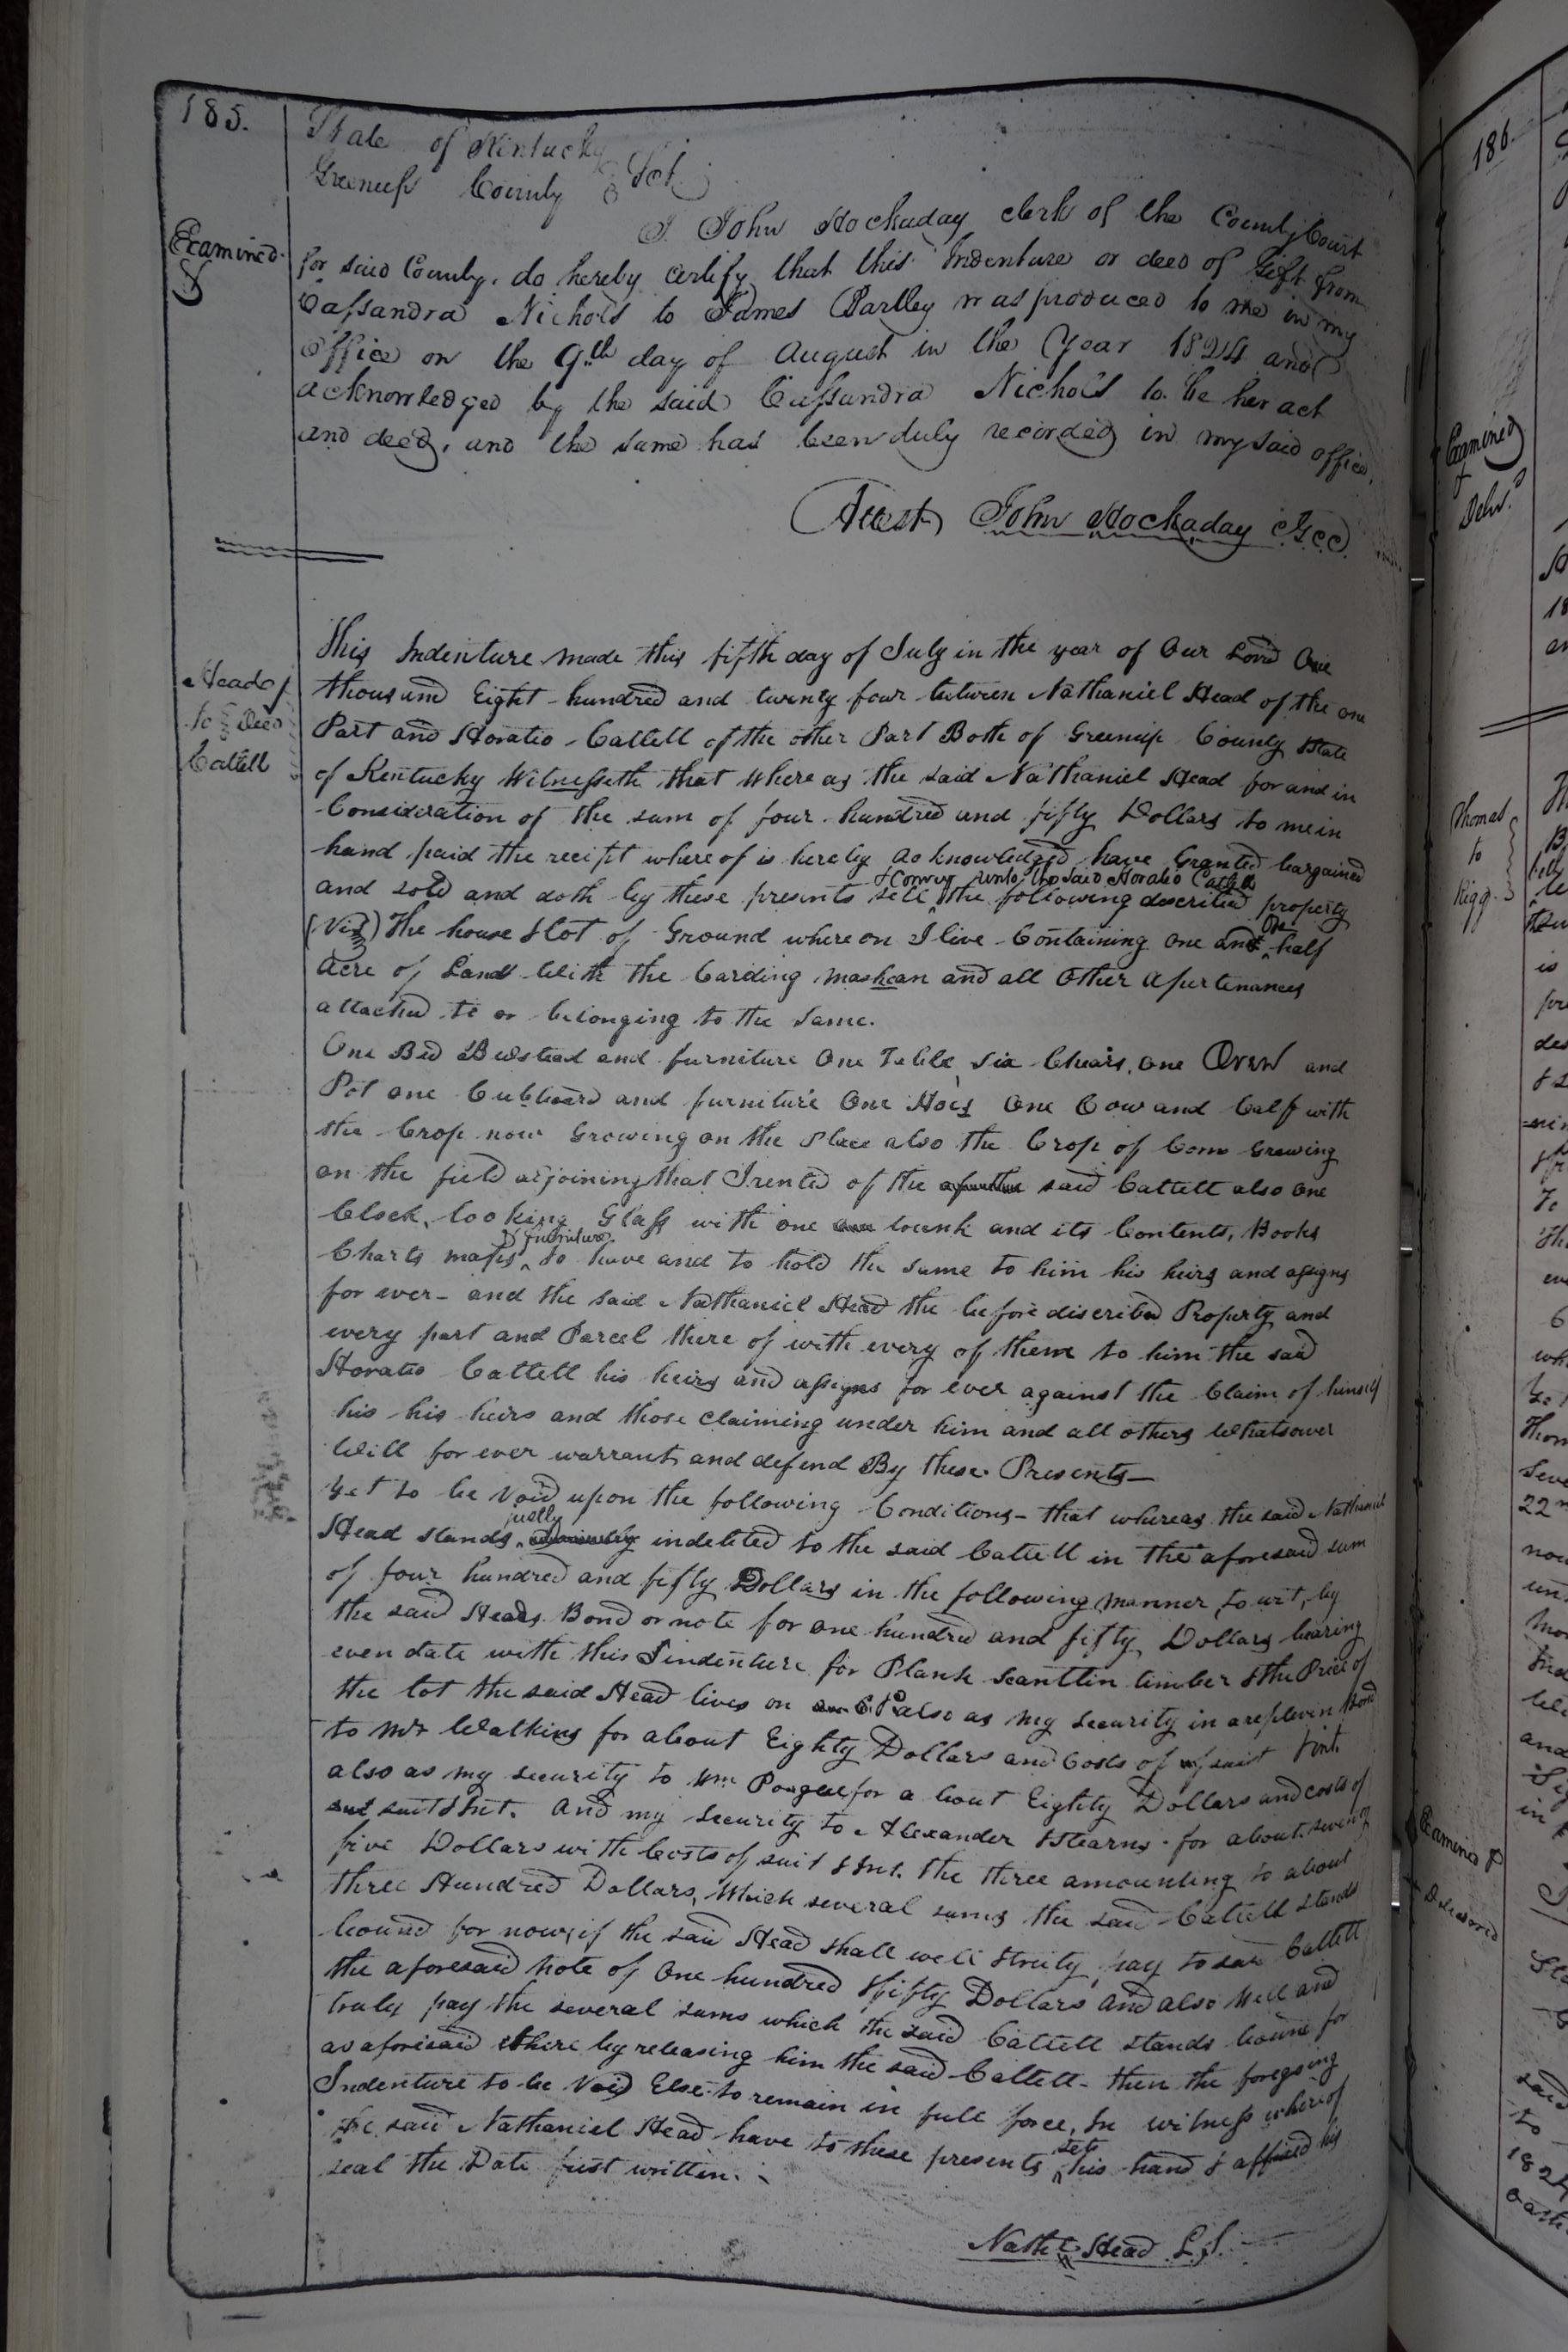 185.
State of Kentucky
Greenup County } Sct.
I John Hockaday clerk of the County Court
Examined.
for said County, do hereby certify that this Indenture or deed of Gift from
Cassandra Nichols to James Partley was produced to me in my
Office on the 9th day of August in the Year 1824 and
acknowledged by the said Cassandra Nichols to be her act
and deed, and the same has been duly recorded in my said office.
Attest John Hockaday CGCC
Head
to } Deed
Cattell
This Indenture made this fifth day of July in the year of Our Lord One
thousand Eight hundred and twenty four between Nathaniel Head of the one
Part and Horatio Cattell of the other Part Both of Greenup County State
of Kentucky Witnesseth that where as the said Nathaniel Head for and in
Consideration of the sum of four hundred and fifty Dollars to me in
hand paid the recipt where of is hereby acknowledged have Granted bargained
& Convey unto the said Horatio Cattell
and sold and doth by these presents sell ^ the following described property
(Viz) The house & lot of Ground where on I live Containing one and ^ One half
Acre of Land With the Carding mashean and all Other Apertenances
attached to or belonging to the Same.
One Bed Bedstead and furniture One Table, Six Chears, one Oven and
Pot one Cubboard and furniture One Hors One Cow and Calf with
the Crop now Growing on the Place also the Crop of Corn Growing
on the field adjoining that I rented of the said Cattell also one
Clock, looking Glass with one trunk and its Contents, Books
& furniture
Charts maps, ^ to have and to hold the same to him his heirs and assigns
for ever - and the said Nathaniel Head the before discribed Property and
every part and Parcel there of with every of them to him the said
Horatio Cattell his heirs and assigns for ever against the Claim of himself
his his heirs and those claiming under him and all others Whatsover
Will for ever warrant and defend By these Presents—
Yet to be Void upon the following Conditions - that whereas the said Nathaniel
justly
Head stands ^ indebted to the said Cattell in the aforesaid sum
of four hundred and fifty Dollars in the following manner, to wit, by
the said Heads Bond or note for one hundred and fifty Dollars bearing
even date with this Indenture for Plank Scantlin timber & the Price of
the lot the said Head lives on also as my security in a replevin Bond
to Mr Watkins for about Eighty Dollars and Costs of suit & int.
also as my security to Wm Poague for a bout Eighty Dollars and costs of
suit & Int. And my security to Alexander & Stearns for about seventy
five Dollars with Costs of suit & Int. the three amounting to about
three Hundred Dollars, Which several sums the said Cattell stands
bound for now, if the said Head shall well & truly pay to said Cattell
the aforesaid note of One hundred & fifty Dollars and also Well and
truly pay the several sums which the said Cattell stands bound for
as aforesaid there by releasing him the said Cattell - then the foregoing
Indenture to be Void Else to remain in full force, In witness where of
the said Nathaniel Head have to these presents ^ set his hand & affixed his
seal the Date first written.
Nathl Head L.S.
186.
Examined
&
Delvd.
Thomas
to
Rigg
Examined &
Delivered